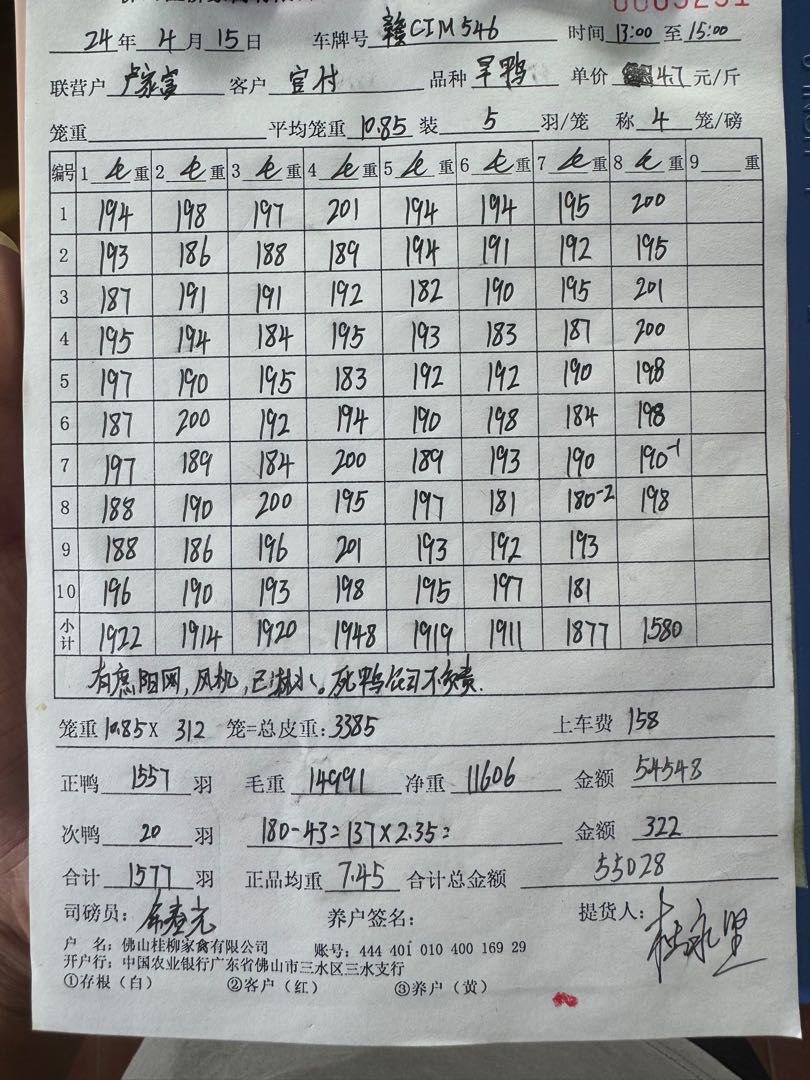 0005291
24 年 4 月 15 日 车牌号 赣CIM546 时间 13:00 至 15:00
联营户 卢家富 客户 官村 品种 旱鸭 单价 4.7 元/斤
笼重 平均笼重 10.85 装 5 羽/笼 称 4 笼/磅
编号 1 毛 重 2 毛 重 3 毛 重 4 毛 重 5 毛 重 6 毛 重 7 毛 重 8 毛 重 9 重
1 194 198 197 201 194 194 195 200
2 193 186 188 189 194 191 192 195
3 187 191 191 192 182 190 195 201
4 195 194 184 195 193 183 187 200
5 197 190 195 183 192 192 190 198
6 187 200 192 194 190 198 184 198
7 197 189 184 200 189 193 190 190-1
8 188 190 200 195 197 181 180-2 198
9 188 186 196 201 193 192 193
10 196 190 193 198 195 197 181
小计 1922 1914 1920 1948 1919 1911 1877 1580
有遮阳网,风机,已淋水。死鸭公司不负责.
笼重 10.85 X 312 笼=总皮重: 3385 上车费 158
正鸭 1557 羽 毛重 14991 净重 11606 金额 54548
次鸭 20 羽 180-43=137×2.35= 金额 322
合计 1577 羽 正品均重 7.45 合计总金额 55028
司磅员: 养户签名: 提货人:
户 名: 佛山桂柳家禽有限公司 账号: 444 401 010 400 169 29
开户行: 中国农业银行广东省佛山市三水区三水支行
①存根（白） ②客户（红） ③养户（黄）